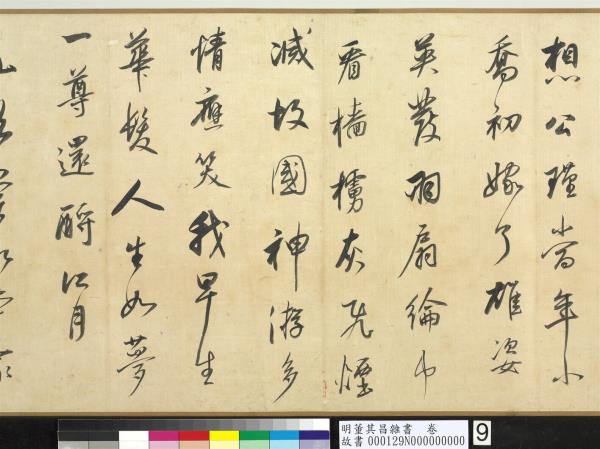 想公瑾當年小
喬初嫁了雄姿
英發羽扇綸巾
看檣櫓灰飛煙
滅故國神游多
情應笑我早生
華髮人生如夢
一尊還酹江月
明董其昌雜書　卷
故書 000129N000000000
9